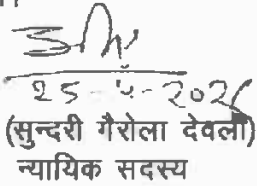 25-4-2025
(सुन्दरी गैरोला देवली)
न्यायिक सदस्य